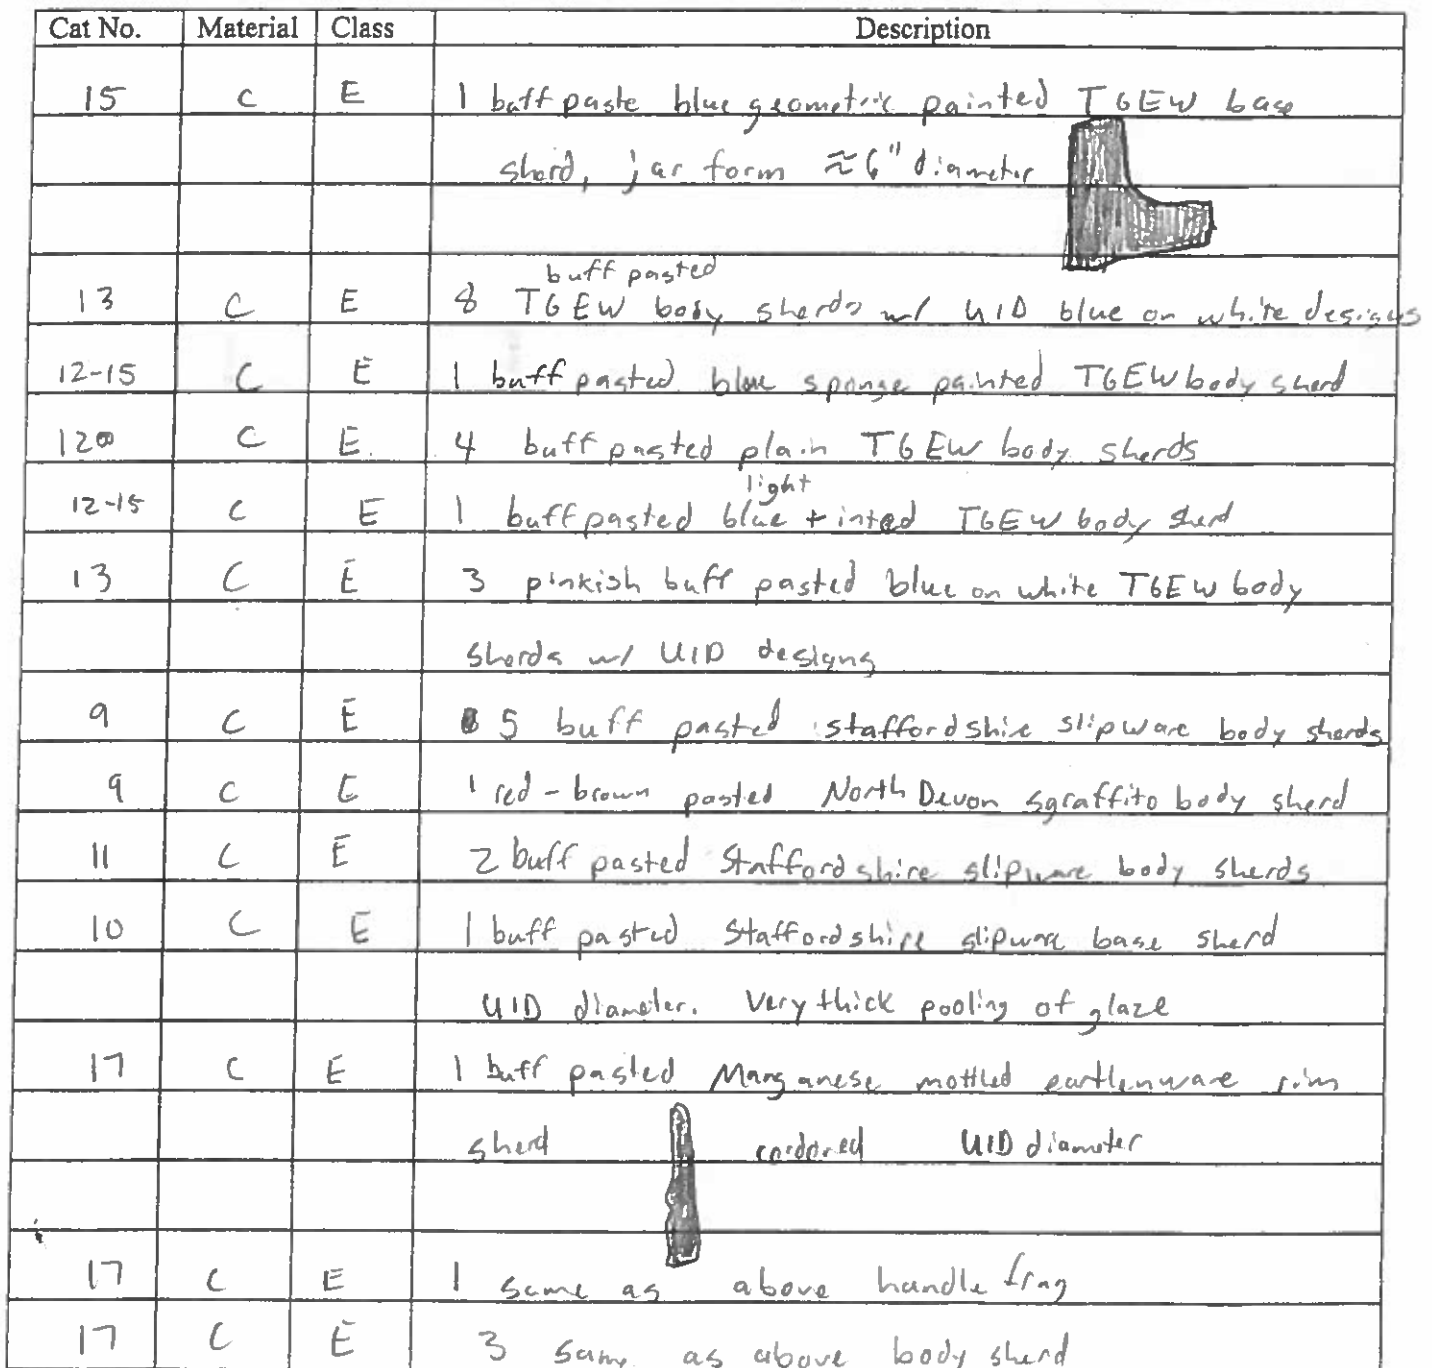 Cat No. Material Class Description
15 C E 1 buff paste blue geometric painted TGEW base
sherd, jar form ≈6" diameter
buff pasted
13 C E 8 TGEW body sherds w/ UID blue on white designs
12-15 C E 1 buff pasted blue sponge painted TGEW body sherd
12 C E 4 buff pasted plain TGEW body sherds
light
12-15 C E 1 buff pasted blue tinted TGEW body sherd
13 C E 3 pinkish buff pasted blue on white TGEW body
sherds w/ UID designs
9 C E 5 buff pasted staffordshire slipware body sherds
9 C E 1 red-brown pasted North Devon sgraffito body sherd
11 C E 2 buff pasted Staffordshire slipware body sherds
10 C E 1 buff pasted Staffordshire slipware base sherd
UID diameter. Very thick pooling of glaze
17 C E 1 buff pasted Manganese mottled earthenware rim
sherd UID diameter
17 C E 1 same as above handle frag
17 C E 3 same as above body sherd